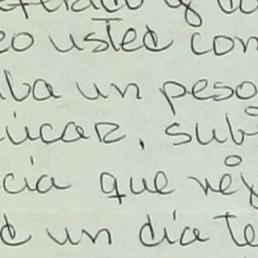 eo usted con
ba un peso
úcar, sub
cia que
un día te